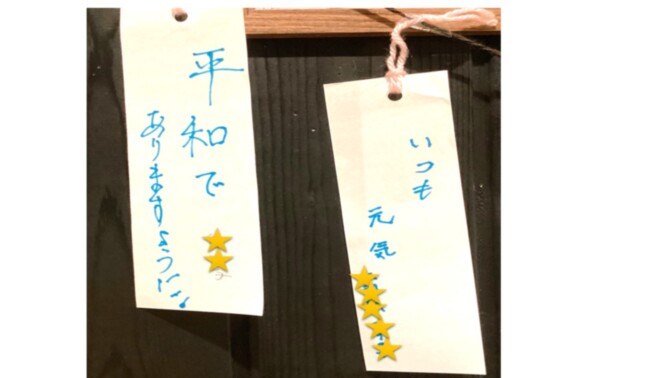 いつも
元気
平和で
ありますように!